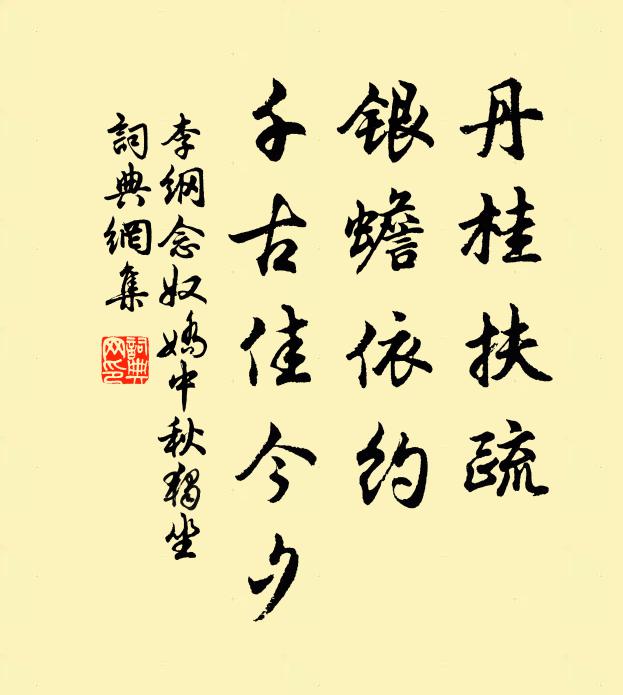 丹桂扶疏
銀蟾依約
千古佳今夕
李綱念奴嬌中秋獨坐
詞典網集
詞典網印